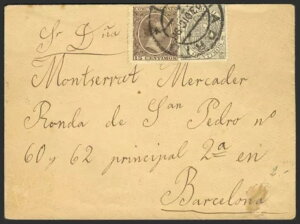 Sr Dña
15 CENTIMOS
Montserrat Mercader
Ronda de San Pedro nº
60 y 62 principal 2ª en
Barcelona